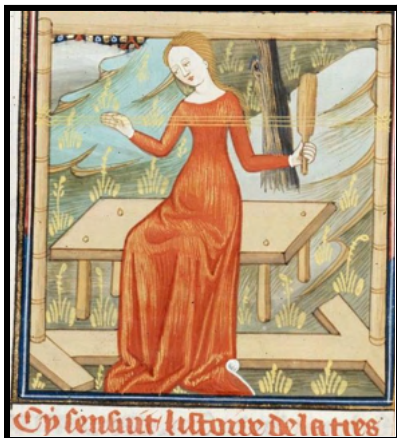 Cy sensuit listoire de la tres